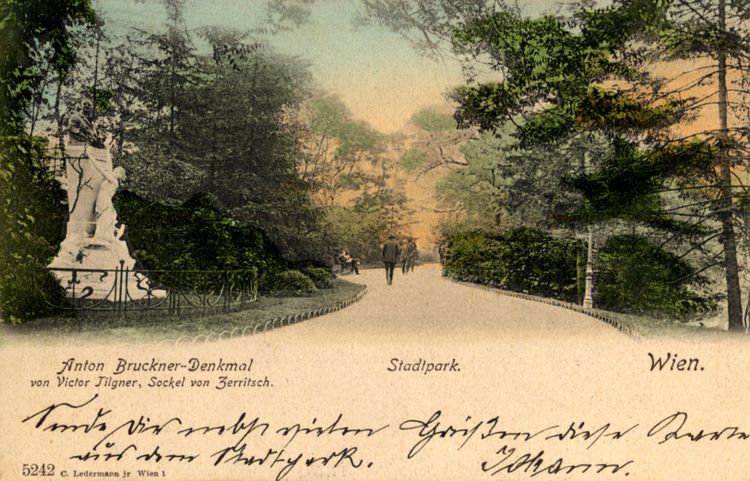 Anton Bruckner-Denkmal
von Victor Tilgner, Sockel von Zerritsch.
Stadtpark.
Wien.
Sende Dir nebst vielen Grüßen diese Karte
aus dem Stadtpark. Johann.
5242 C. Ledermann jr. Wien 1